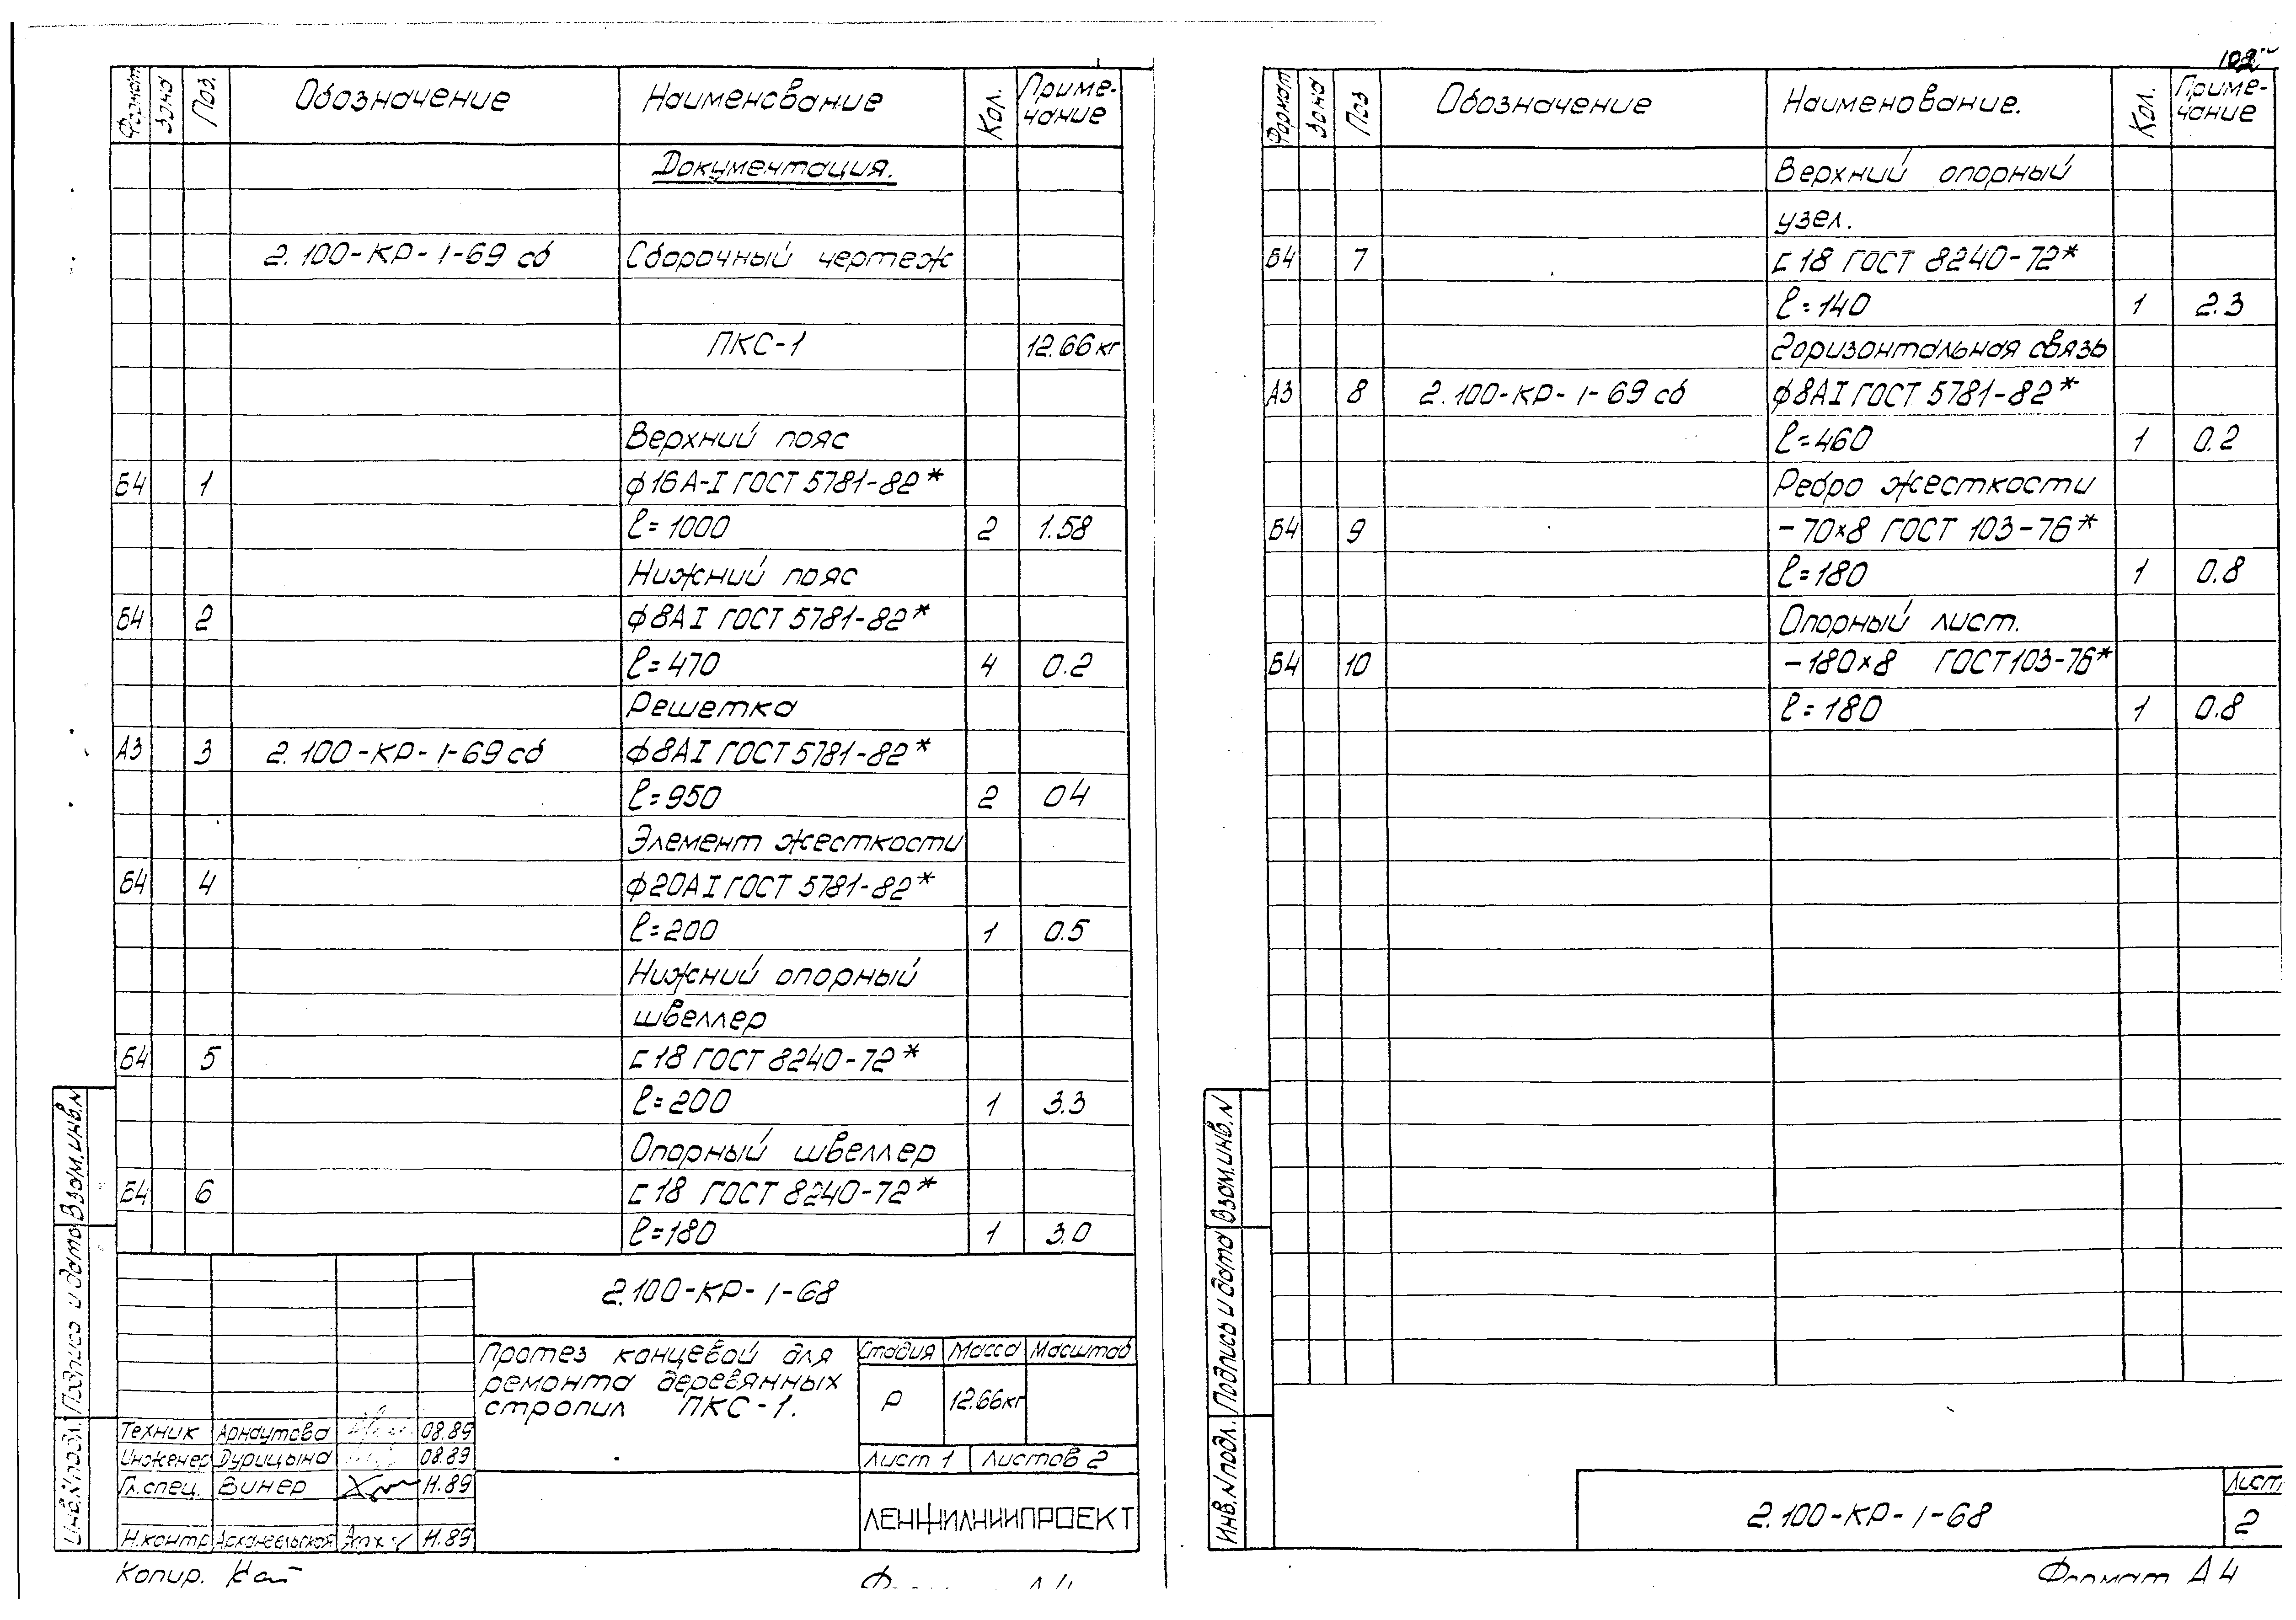 Формат Зона Поз. Обозначение Наименование Кол. Приме-
чание
Документация.
2.100-КР-1-69 сб Сборочный чертеж
ПКС-1 12.66 кг
Верхний пояс
Б4 1 ϕ16А-I ГОСТ 5781-82*
ℓ=1000 2 1.58
Нижний пояс
Б4 2 ϕ8АI ГОСТ 5781-82*
ℓ=470 4 0.2
Решетка
А3 3 2.100-КР-1-69 сб ϕ8АI ГОСТ 5781-82*
ℓ=950 2 04
Элемент жесткости
Б4 4 ϕ20АI ГОСТ 5781-82*
ℓ=200 1 0.5
Нижний опорный
швеллер
Б4 5 ⊏18 ГОСТ 8240-72*
ℓ=200 1 3.3
Опорный швеллер
Б4 6 ⊏18 ГОСТ 8240-72*
ℓ=180 1 3.0
2.100-КР-1-68
Протез концевой для
ремонта деревянных
стропил ПКС-1.
Стадия Масса Масштаб
Р 12.66кг
Лист 1 Листов 2
Техник Арнаутова 08.89
Инженер Дурицына 08.89
Гл.спец. Винер 11.89
Н.контр Архангельская 11.89
ЛЕНЖИЛНИИПРОЕКТ
Взам.инв.N
Подпись и дата
Инв.N подл.
Копир.
102
Формат Зона Поз Обозначение Наименование. Кол. Приме-
чание
Верхний опорный
узел.
Б4 7 ⊏18 ГОСТ 8240-72*
ℓ=140 1 2.3
Горизонтальная связь
А3 8 2.100-КР-1-69 сб ϕ8АI ГОСТ 5781-82*
ℓ=460 1 0.2
Ребро жесткости
Б4 9 -70×8 ГОСТ 103-76*
ℓ=180 1 0.8
Опорный лист.
Б4 10 -180×8 ГОСТ 103-76*
ℓ=180 1 0.8
Взам.инв.N
Подпись и дата
Инв.N подл.
2.100-КР-1-68
Лист
2
Формат А4